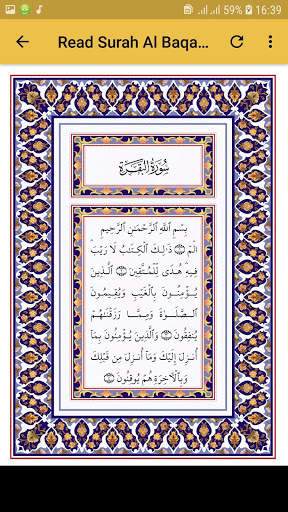 59% 16:39
Read Surah Al Baqa...
سُورَةُ البَقَرَةِ
بِسْمِ ٱللَّهِ ٱلرَّحْمَـٰنِ ٱلرَّحِيمِ
الٓمٓ ۝ ذَٰلِكَ ٱلْكِتَـٰبُ لَا رَيْبَ ۛ
فِيهِ ۛ هُدًى لِّلْمُتَّقِينَ ۝ ٱلَّذِينَ
يُؤْمِنُونَ بِٱلْغَيْبِ وَيُقِيمُونَ
ٱلصَّلَوٰةَ وَمِمَّا رَزَقْنَـٰهُمْ
يُنفِقُونَ ۝ وَٱلَّذِينَ يُؤْمِنُونَ بِمَآ
أُنزِلَ إِلَيْكَ وَمَآ أُنزِلَ مِن قَبْلِكَ
وَبِٱلْـَٔاخِرَةِ هُمْ يُوقِنُونَ ۝